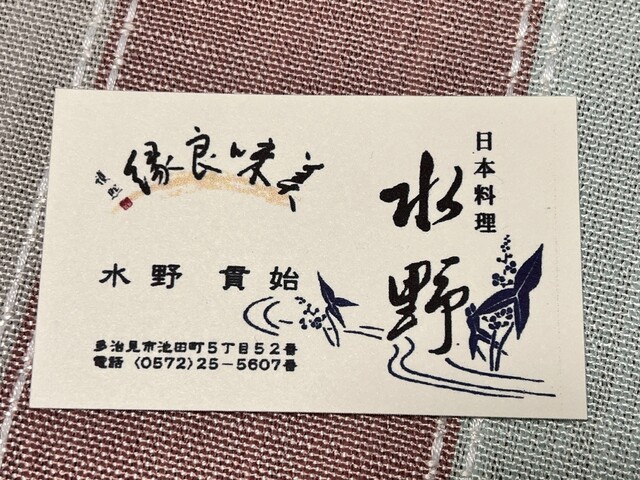 日本料理
水野
美味良縁
水野 貫始
多治見市池田町5丁目52番
電話〈0572〉25-5607番